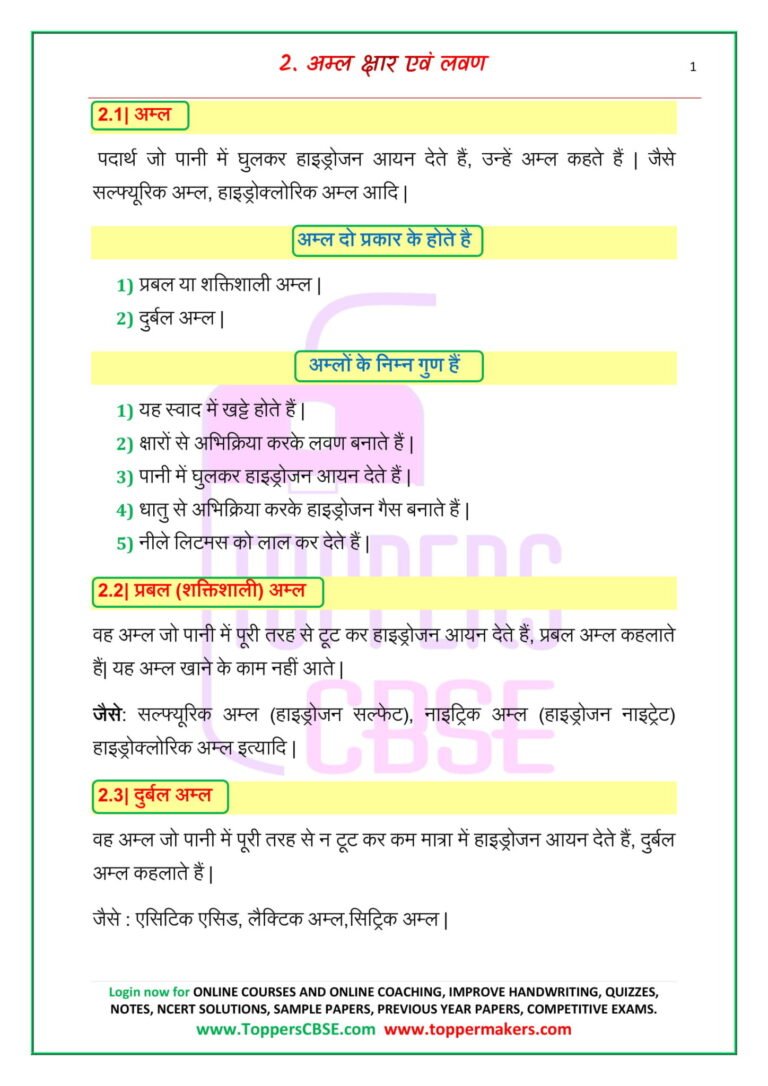 2. अम्ल क्षार एवं लवण
1
2.1| अम्ल
पदार्थ जो पानी में घुलकर हाइड्रोजन आयन देते हैं, उन्हें अम्ल कहते हैं | जैसे
सल्फ्यूरिक अम्ल, हाइड्रोक्लोरिक अम्ल आदि |
अम्ल दो प्रकार के होते है
1) प्रबल या शक्तिशाली अम्ल |
2) दुर्बल अम्ल |
अम्लों के निम्न गुण हैं
1) यह स्वाद में खट्टे होते हैं |
2) क्षारों से अभिक्रिया करके लवण बनाते हैं |
3) पानी में घुलकर हाइड्रोजन आयन देते हैं |
4) धातु से अभिक्रिया करके हाइड्रोजन गैस बनाते हैं |
5) नीले लिटमस को लाल कर देते हैं |
TOPPERS
2.2| प्रबल (शक्तिशाली) अम्ल
वह अम्ल जो पानी में पूरी तरह से टूट कर हाइड्रोजन आयन देते हैं, प्रबल अम्ल कहलाते
हैं| यह अम्ल खाने के काम नहीं आते |
CBSE
जैसे: सल्फ्यूरिक अम्ल (हाइड्रोजन सल्फेट), नाइट्रिक अम्ल (हाइड्रोजन नाइट्रेट)
हाइड्रोक्लोरिक अम्ल इत्यादि |
2.3| दुर्बल अम्ल
वह अम्ल जो पानी में पूरी तरह से न टूट कर कम मात्रा में हाइड्रोजन आयन देते हैं, दुर्बल
अम्ल कहलाते हैं |
जैसे : एसिटिक एसिड, लैक्टिक अम्ल,सिट्रिक अम्ल |
Login now for ONLINE COURSES AND ONLINE COACHING, IMPROVE HANDWRITING, QUIZZES,
NOTES, NCERT SOLUTIONS, SAMPLE PAPERS, PREVIOUS YEAR PAPERS, COMPETITIVE EXAMS.
www.ToppersCBSE.com www.toppermakers.com